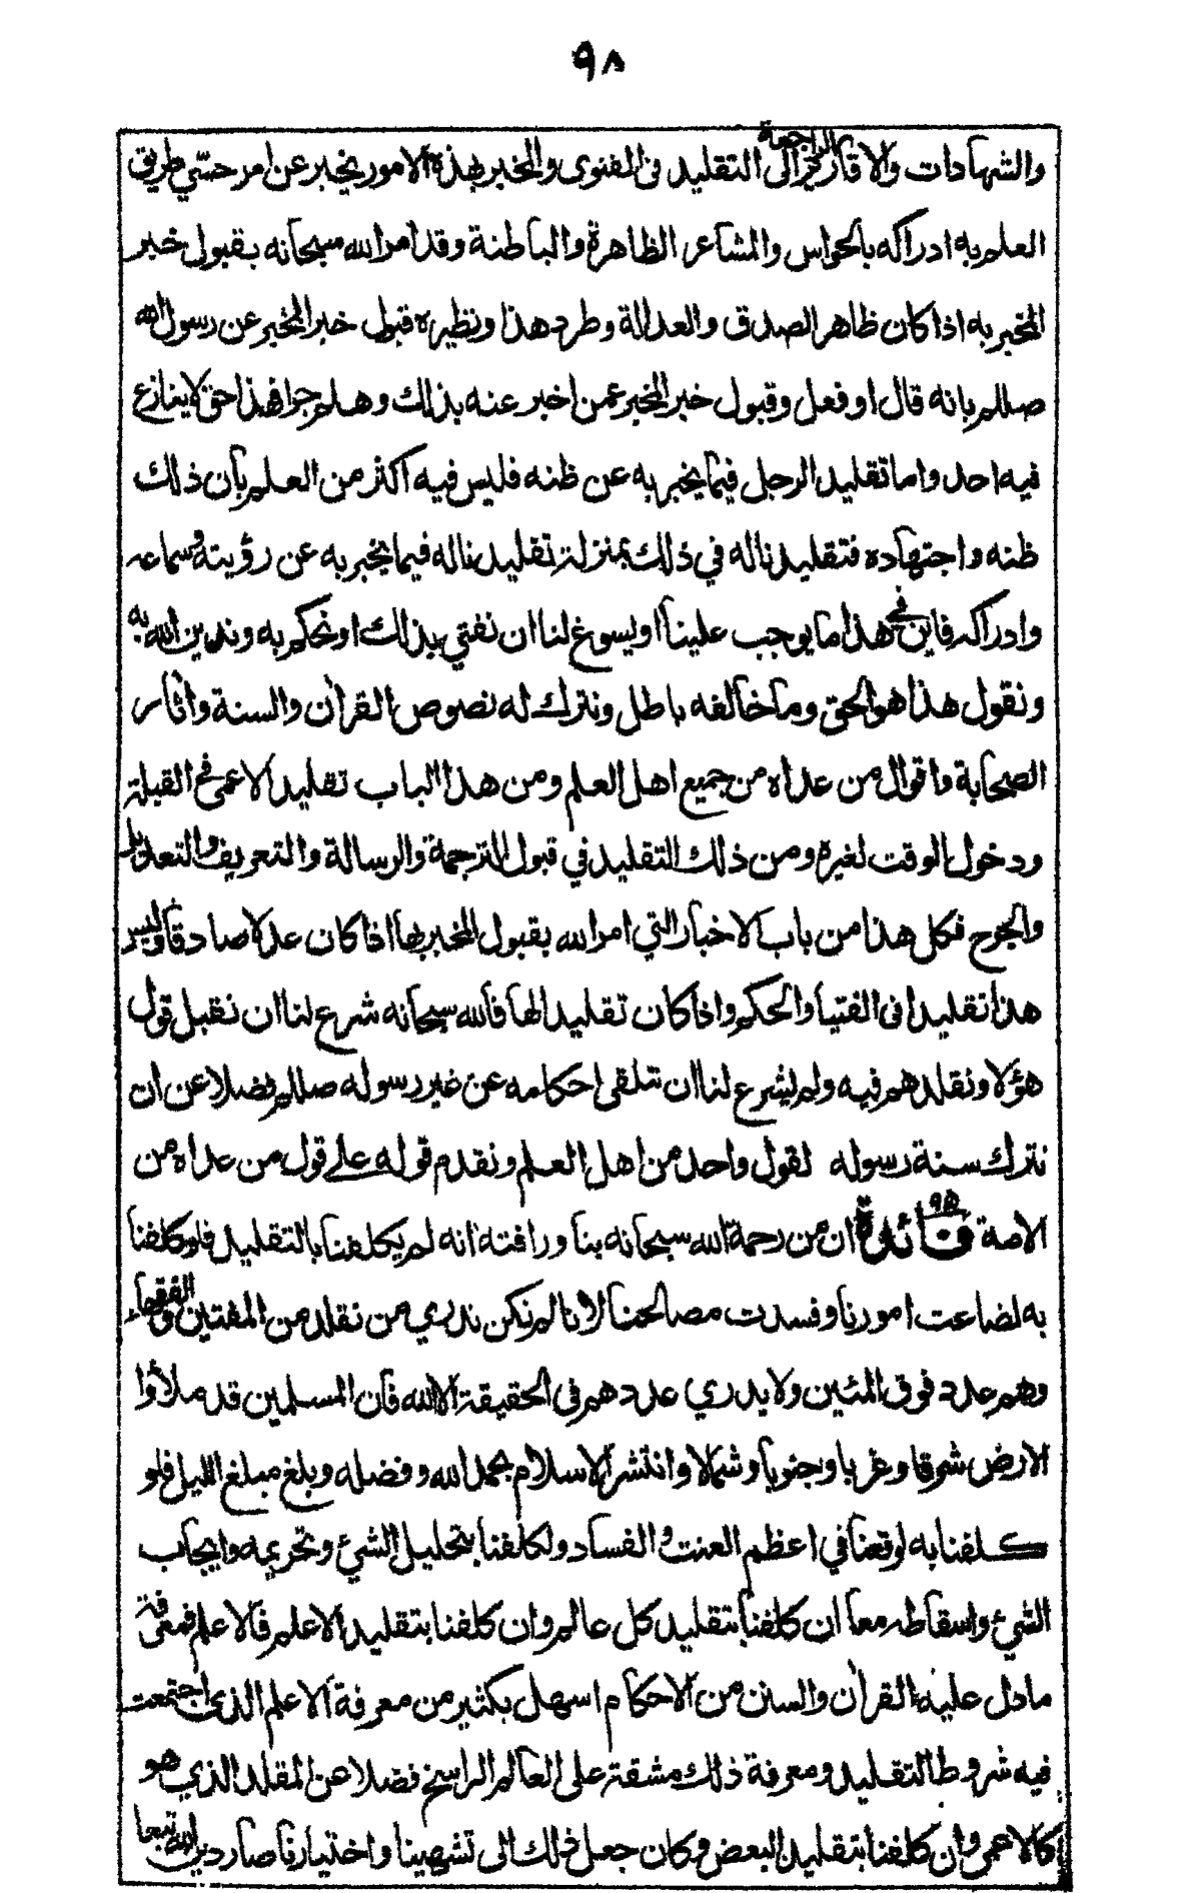 ٩٨
والشهادات والاقارير الراجعة الى التقليد فى الفتوى والمخبر بهذه الامور يخبر عن امر حسّي طريق
العلم به ادراكه بالحواس والمشاعر الظاهرة والباطنة وقد امر الله سبحانه بقبول خبر
المخبر به اذا كان ظاهر الصدق والعدالة وطرد هذا ونظيره قبول خبر المخبر عن رسول الله
صللم بانه قال او فعل وقبول خبر المخبر عمن اخبر عنه بذلك وهلم جرا فهذا حق لا ينازع
فيه احد واما تقليد الرجل فيما يخبر به عن ظنه فليس فيه اكثر من العلم بان ذلك
ظنه واجتهاده فتقليدنا له في ذلك بمنزلة تقليدنا له فيما يخبر به عن رؤيته وسماعه
وادراكه فاين فى هذا ما يوجب علينا او يسوغ لنا ان نفتي بذلك او نحكم به وندين الله به
ونقول هذا هو الحق وما خالفه باطل ونترك له نصوص القرآن والسنة وآثار
الصحابة واقوال من عداه من جميع اهل العلم ومن هذا الباب تقليد الاعمى فى القبلة
ودخول الوقت لغيره ومن ذلك التقليد في قبول الترجمة والرسالة والتعريف والتعديل
والجرح فكل هذا من باب الاخبار التي امر الله بقبول المخبر بها اذا كان عدلا صادقا وليس
هذا تقليدا فى الفتيا والحكم واذا كان تقليدا لها فالله سبحانه شرع لنا ان نقبل قول
هؤلا ونقلدهم فيه ولم يشرع لنا ان نتلقى احكامه عن غير رسوله صللم فضلا عن ان
نترك سنة رسوله لقول واحد من اهل العلم ونقدم قوله على قول من عداه من
الامة فائدة ٩٥ ان من رحمة الله سبحانه بنا ورافته انه لم يكلفنا بالتقليد فلو كلفنا
به لضاعت امورنا وفسدت مصالحنا لانا لم نكن ندري من نقلد من المفتين والفقهاء
وهم عدد فوق المئين ولا يدري عددهم فى الحقيقة الا الله فان المسلمين قد ملأوا
الارض شرقا وغربا وجنوبا وشمالا وانتشر الاسلام بحمد الله وفضله وبلغ مبلغ الليل فلو
كلفنا به لوقعنا في اعظم العنت والفساد ولكلفنا بتحليل الشئ وتحريمه وايجاب
الشئ واسقاطه معا ان كلفنا بتقليد كل عالم وان كلفنا بتقليد الاعلم فالاعلم فمعرفة
ما دل عليه القرآن والسنن من الاحكام اسهل بكثير من معرفة الاعلم الذى اجتمعت
فيه شروط التقليد ومعرفة ذلك مشقة على العالم الراسخ فضلا عن المقلد الذي هو
كالاعمى وان كلفنا بتقليد البعض وكان جعل ذلك الى تشهينا واختيارنا صار دين الله تبعا